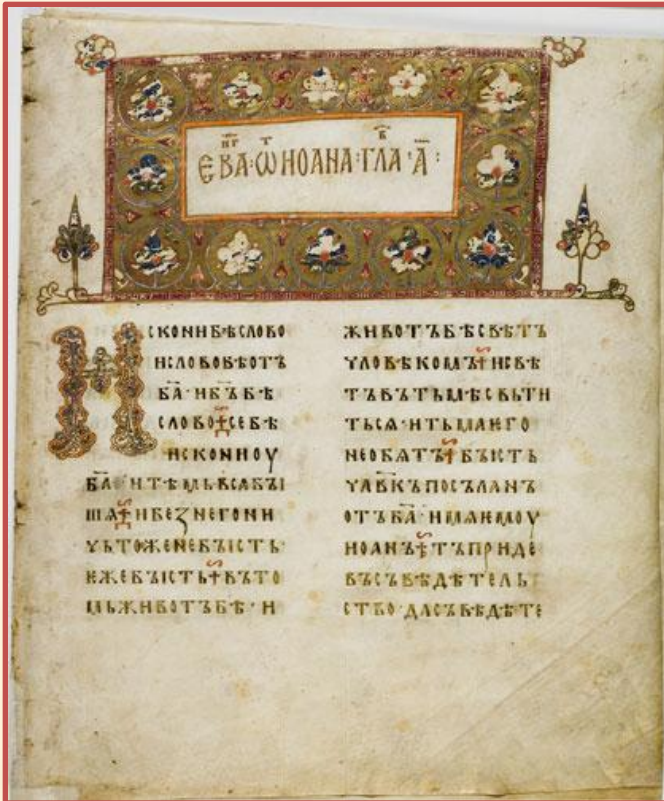 ЄВА·ѠИОАНА·ГЛА·А҃:
ИСКОНИБѢСЛОВО
ИСЛОВОБѢОТЪ
БА҃·ИБЪ҃БѢ
СЛОВО·СЕБѢ
ИСКОНИОУ
БА҃·ИТѢМЬВСѦБЪІ
ШѦ·ИБЕЗНЕГОНИ
ЧЬТОЖЕНЕБЪІСТЬ·
ѤЖЕБЪІСТЬ·ВЪТО
МЬЖИВОТЪБѢ·И
ЖИВОТЪБѢСВѢТЪ
ЧЛОВѢКОМЪ·ИСВѢ
ТЪВЪТЬМѢСВЬТИ
ТЬСѦ·ИТЬМАѤГО
НЕОБѦТЪ·БЪІСТЬ
ЧЛВ҃КЪПОСЪЛАНЪ
ОТЪБА҃·ИМѦѤМОУ
ИОАНЪ·ТЪПРИДЕ
ВЪСЪВѢДѢТЕЛЬ
СТВО·ДАСЪВѢДѢТЕ